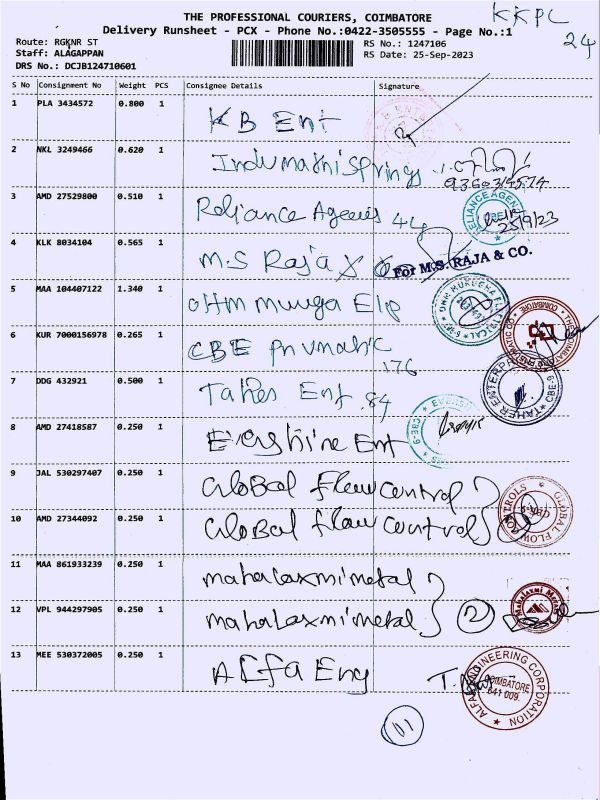 THE PROFESSIONAL COURIERS, COIMBATORE
KKPL
Delivery Runsheet - PCX - Phone No.:0422-3505555 - Page No.:1
24
Route: RGKNR ST
RS No.: 1247106
Staff: ALAGAPPAN
RS Date: 25-Sep-2023
DRS No.: DCJB124710601
S No Consignment No Weight PCS Consignee Details Signature
1 PLA 3434572 0.800 1 KB Ent
2 NKL 3249466 0.620 1 Indumathi springs
9360314574
3 AMD 27529800 0.510 1 Reliance Agencies 44
RELIANCE AGENC CBE
25/9/23
4 KLK 8034104 0.565 1 M.S Raja &
For M.S. RAJA & CO.
5 MAA 104407122 1.340 1 ohm muuga Elp
6 KUR 7000156978 0.265 1 CBE pnumatic
176
THE COIMBATORE
7 DDG 432921 0.500 1 Taher Ent .84
TAHER ENTERPRI CBE-9
8 AMD 27418587 0.250 1 Evershine Ent
CBE-9
9 JAL 530297407 0.250 1 Global flow control
10 AMD 27344092 0.250 1 Global flow control
GLOBAL FLOW CONTROLS
11 MAA 861933239 0.250 1 mahalaxmi metal
12 VPL 944297905 0.250 1 mahalaxmi metal 2
Mahalaxmi Metal
13 MEE 530372005 0.250 1 Alfa Eng
ALFA ENGINEERING CORPORATION
COIMBATORE
641 009.